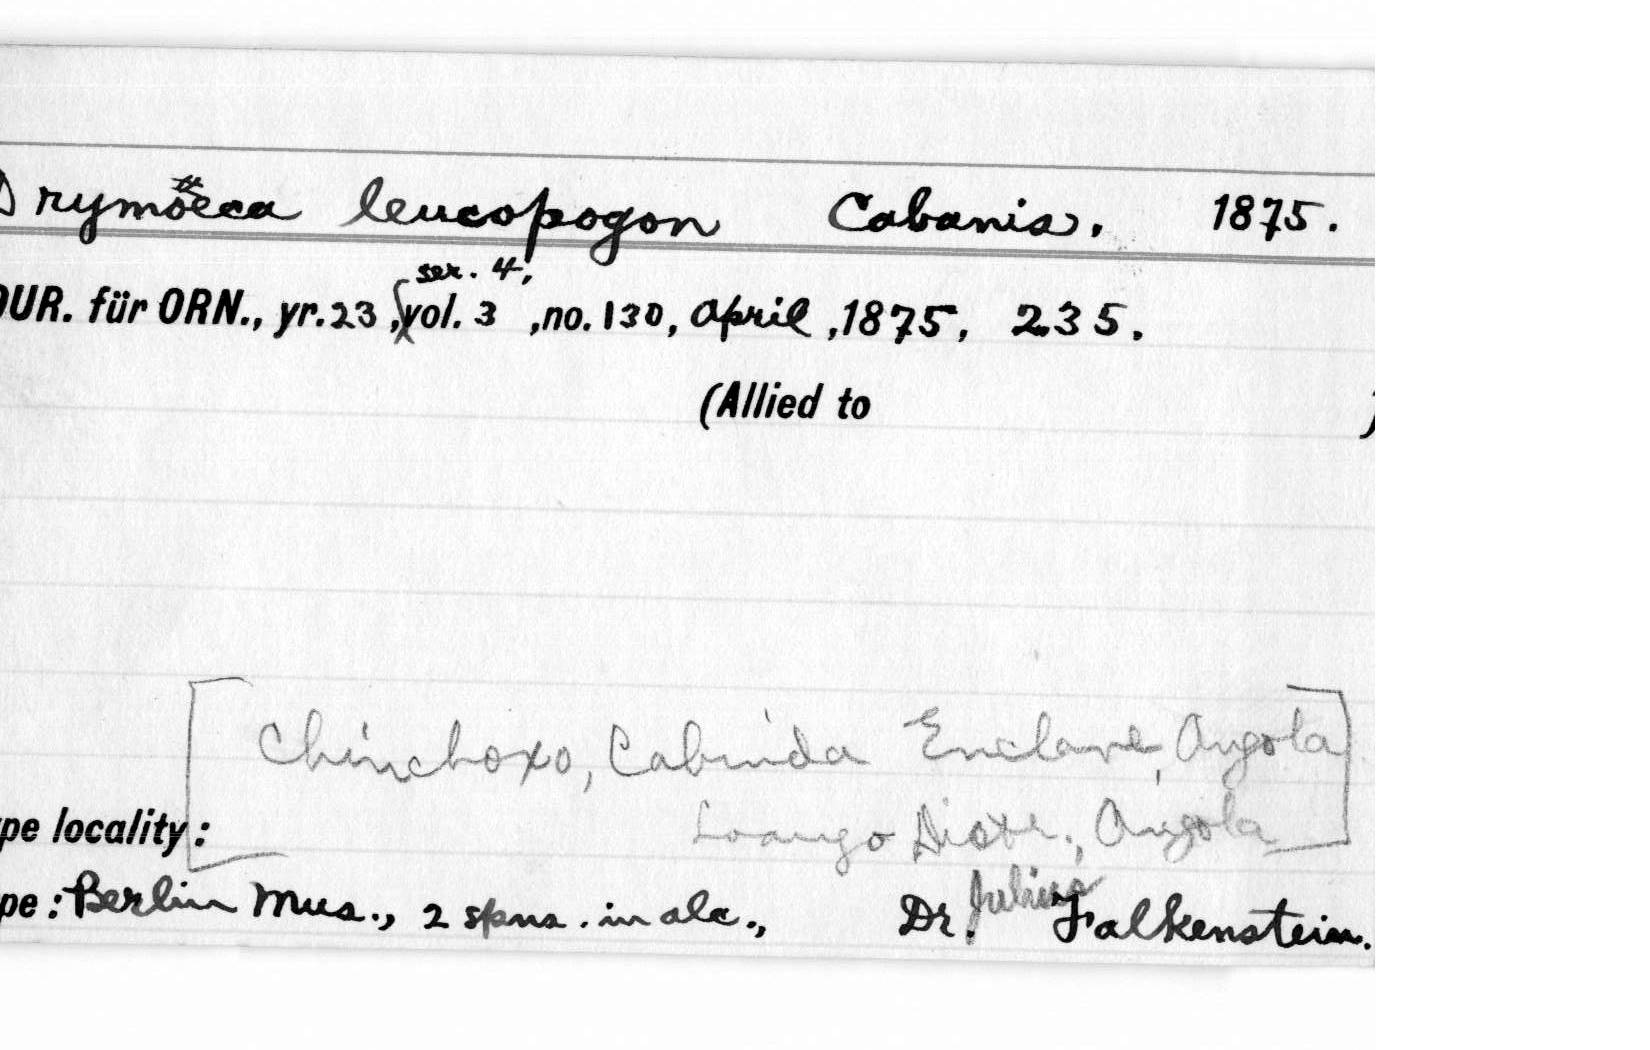 Drymöeca leucopogon Cabanis. 1875.
ser. 4,
OUR. für ORN., yr. 23, vol. 3, no. 130, April, 1875, 235.
(Allied to )
Chinchoxo, Cabinda Enclave, Angola
Loango Distr., Angola
pe locality:
Julius
pe: Berlin Mus., 2 spns. in alc., Dr. Falkenstein.